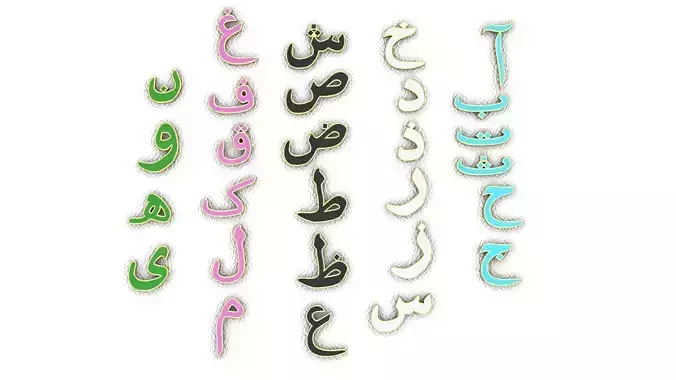 آ ب ت ث ح ج
خ د ذ ر ز س
ش ص ض ط ظ ع
غ ف ق ک ل م
ن و ه ی